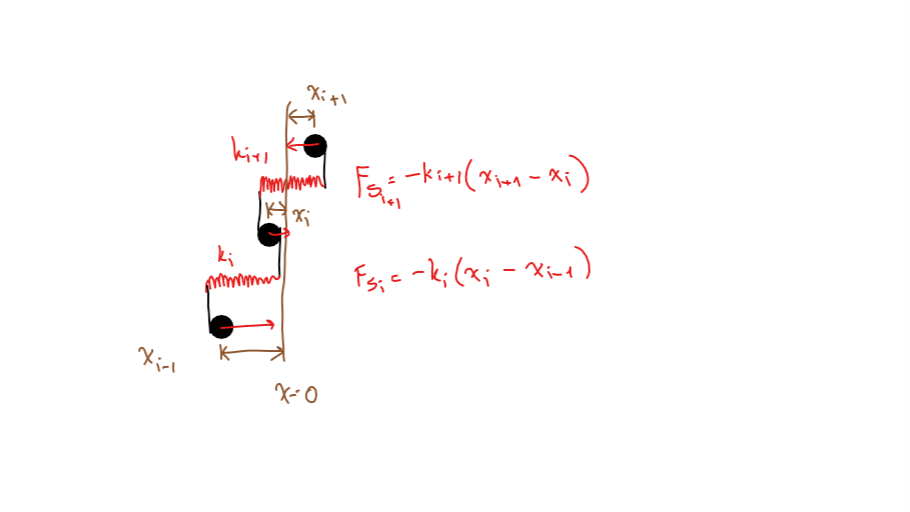 x_{i+1}
k_{i+1}
F_{S_{i+1}} = -k_{i+1}(x_{i+1} - x_i)
x_i
k_i
F_{S_i} = -k_i(x_i - x_{i-1})
x_{i-1}
x=0